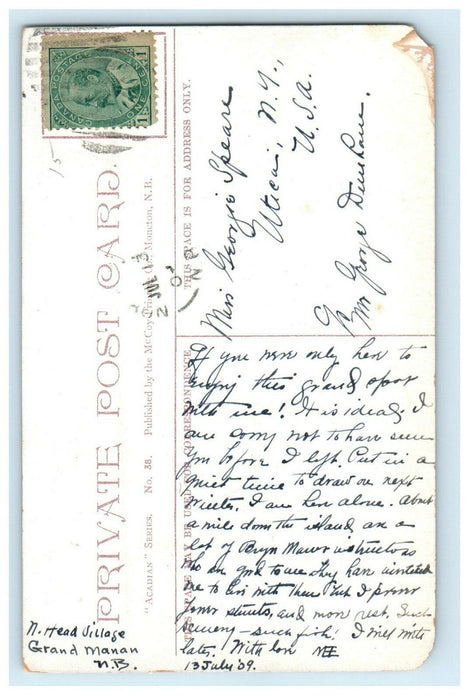 CANADA POSTAGE
1 ONE CENT 1
15
PRIVATE POST CARD.
"ACADIAN" SERIES. No. 38. Published by the McCoy Printing Co., Moncton, N.B.
THIS SPACE MAY BE USED FOR CORRESPONDENCE.
THIS SPACE IS FOR ADDRESS ONLY.
JUL 13
09
N B
Miss Georgie Speare
Utica, N.Y.,
U.S.A.
C/o Mrs George Dunham.
If you were only here to
enjoy this grand spot
with me! It is ideal. I
am sorry not to have seen
you before I left. Put in a
quiet time to draw on next
winter. I am here alone. About
a mile down the island are a
lot of Bryn Mawr instructors
who are good to me. They have invited
me to live with them but I prefer
fewer streets, and more rest. Such
scenery - such fish! I will write
later. With love
13 July '09.
N. Head Village
Grand Manan
N.B.